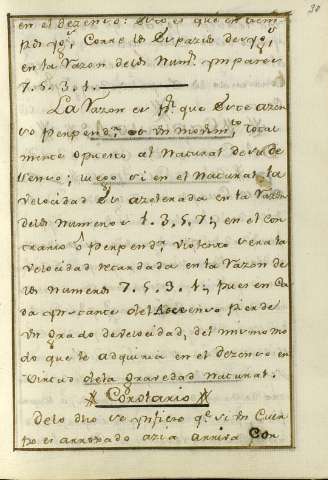 30
en el Dezenso: Esto es que en tiem
pos yg.s, corre los Espazios desyg.s,
en la Razon delos Num.s ympares
7. 5. 3. 1.
La Razon es p.r que Este azen
so perpend.r es un movim.to total
mente opuesto al Natural de su de
senso; luego si en el Natural la
velocidad Es azelerada en la Razon
delos Numeros 1. 3. 5. 7; en el Con
trario ô perpend.r violento sera la
velocidad retardada en la Razon de
los Numeros 7. 5. 3. 1; pues en Ca
da ynstante del Accenso pierde
un grado de velocidad, del mismo mo
do que le adquiria en el dezenso en
virtud dela gravedad Natural.
Corolario
Delo dho se ynfiere q.e si un Cuer
po es arrojado azia arriva Con